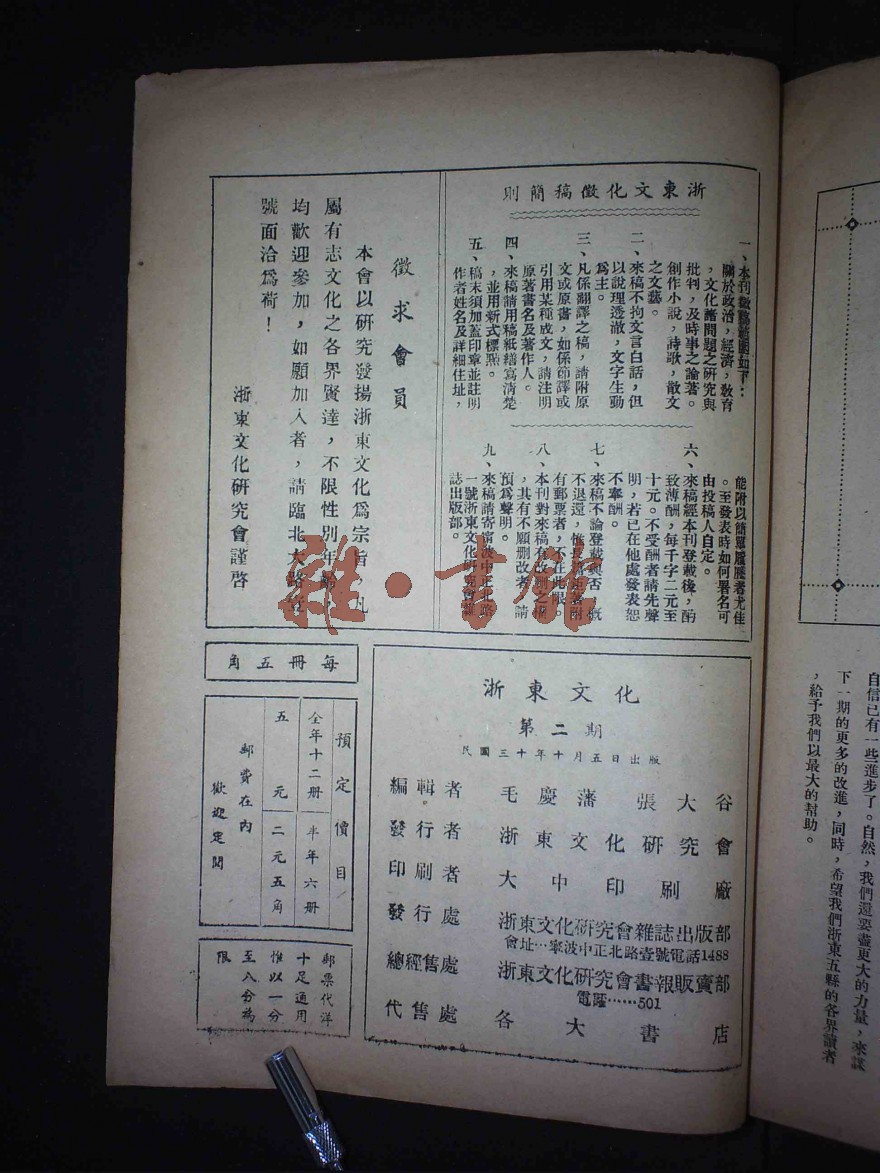 浙東文化徵稿簡則
一、本刊徵稿範圍如下：
關於政治，經濟，教育
，文化諸問題之研究與
批判，及時事之論著。
創作小說，詩歌，散文
之文藝。
二、來稿不拘文言白話，但
以說理透澈，文字生動
為主。
三、凡係翻譯之稿，請附原
文或原書，如係節譯或
引用某種成文，請注明
原著書名及著作人。
四、來稿請用稿紙繕寫清楚
，並用新式標點。
五、稿末須加蓋印章並註明
作者姓名及詳細住址，
能附以簡單履歷者尤佳
。至發表時如何署名可
由投稿人自定。
六、來稿經本刊登載後，酌
致薄酬，每千字二元至
十元。不受酬者請先聲
明，若已在他處發表恕
不奉酬。
七、來稿不論登載與否，概
不退還，惟長篇
有郵票者，不在此限。
八、本刊對來稿有改刪之
，其有不願刪改者，請
預為聲明。
九、來稿請寄寧波中正北路
一號浙東文化研究會雜
誌出版部。
徵求會員
本會以研究發揚浙東文化為宗旨，凡
屬有志文化之各界賢達，不限性別年齡，
均歡迎參加，如願加入者，請臨北大路壹
號面洽為荷！
浙東文化研究會謹啓
浙東文化
第二期
民國三十年十月五日出版
編輯者 毛慶藩 張大谷
發行者 浙東文化研究會
印刷者 大中印刷廠
發行處 浙東文化研究會雜誌出版部
會址…寧波中正北路壹號電話1488
總經售處 浙東文化研究會書報販賣部
電話……501
代售處 各大書店
每冊五角
預定價目
全年十二冊 半年六冊
五元 二元五角
郵費在內
歡迎定閱
郵票代洋
十足通用
惟以一分
至八分為
限
自信已有一些進步了。自然，我們還要盡更大的力量，來謀
下一期的更多的改進，同時，希望我們浙東五縣的各界讀者
，給予我們以最大的幫助。
雜·書館